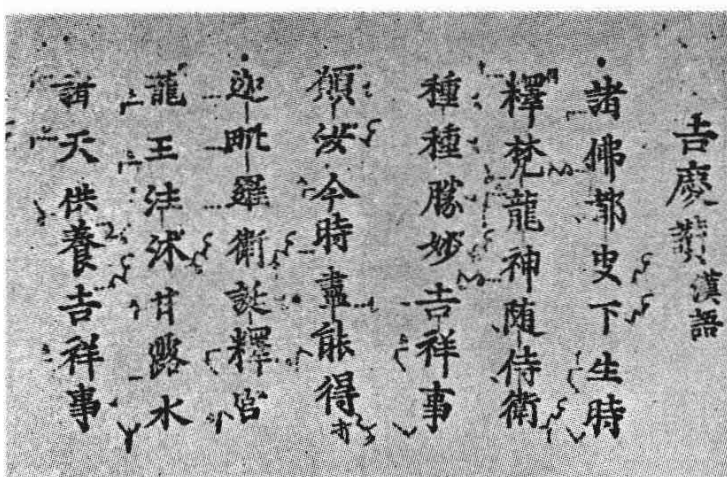 吉慶讃漢語
諸佛都史下生時
釋梵龍神随侍衛
種種勝妙吉祥事
願汝今時盡能得
迦毗羅衛誕釋宮
龍王澍沐甘露水
諸天供養吉祥事